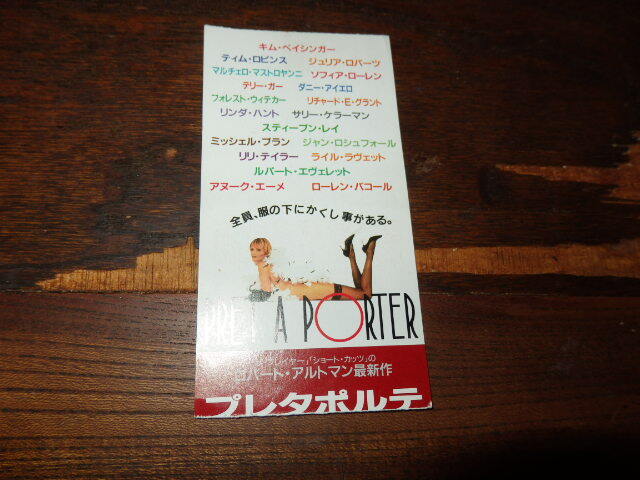 キム・ベイシンガー
ティム・ロビンス ジュリア・ロバーツ
マルチェロ・マストロヤンニ ソフィア・ローレン
テリー・ガー ダニー・アイエロ
フォレスト・ウィテカー リチャード・E・グラント
リンダ・ハント サリー・ケラーマン
スティーブン・レイ
ミッシェル・ブラン ジャン・ロシュフォール
リリ・テイラー ライル・ラヴェット
ルパート・エヴェレット
アヌーク・エーメ ローレン・バコール
全員、服の下にかくし事がある。
PRET A PORTER
プレイヤー」「ショート・カッツ」の
ロバート・アルトマン最新作
プレタポルテ